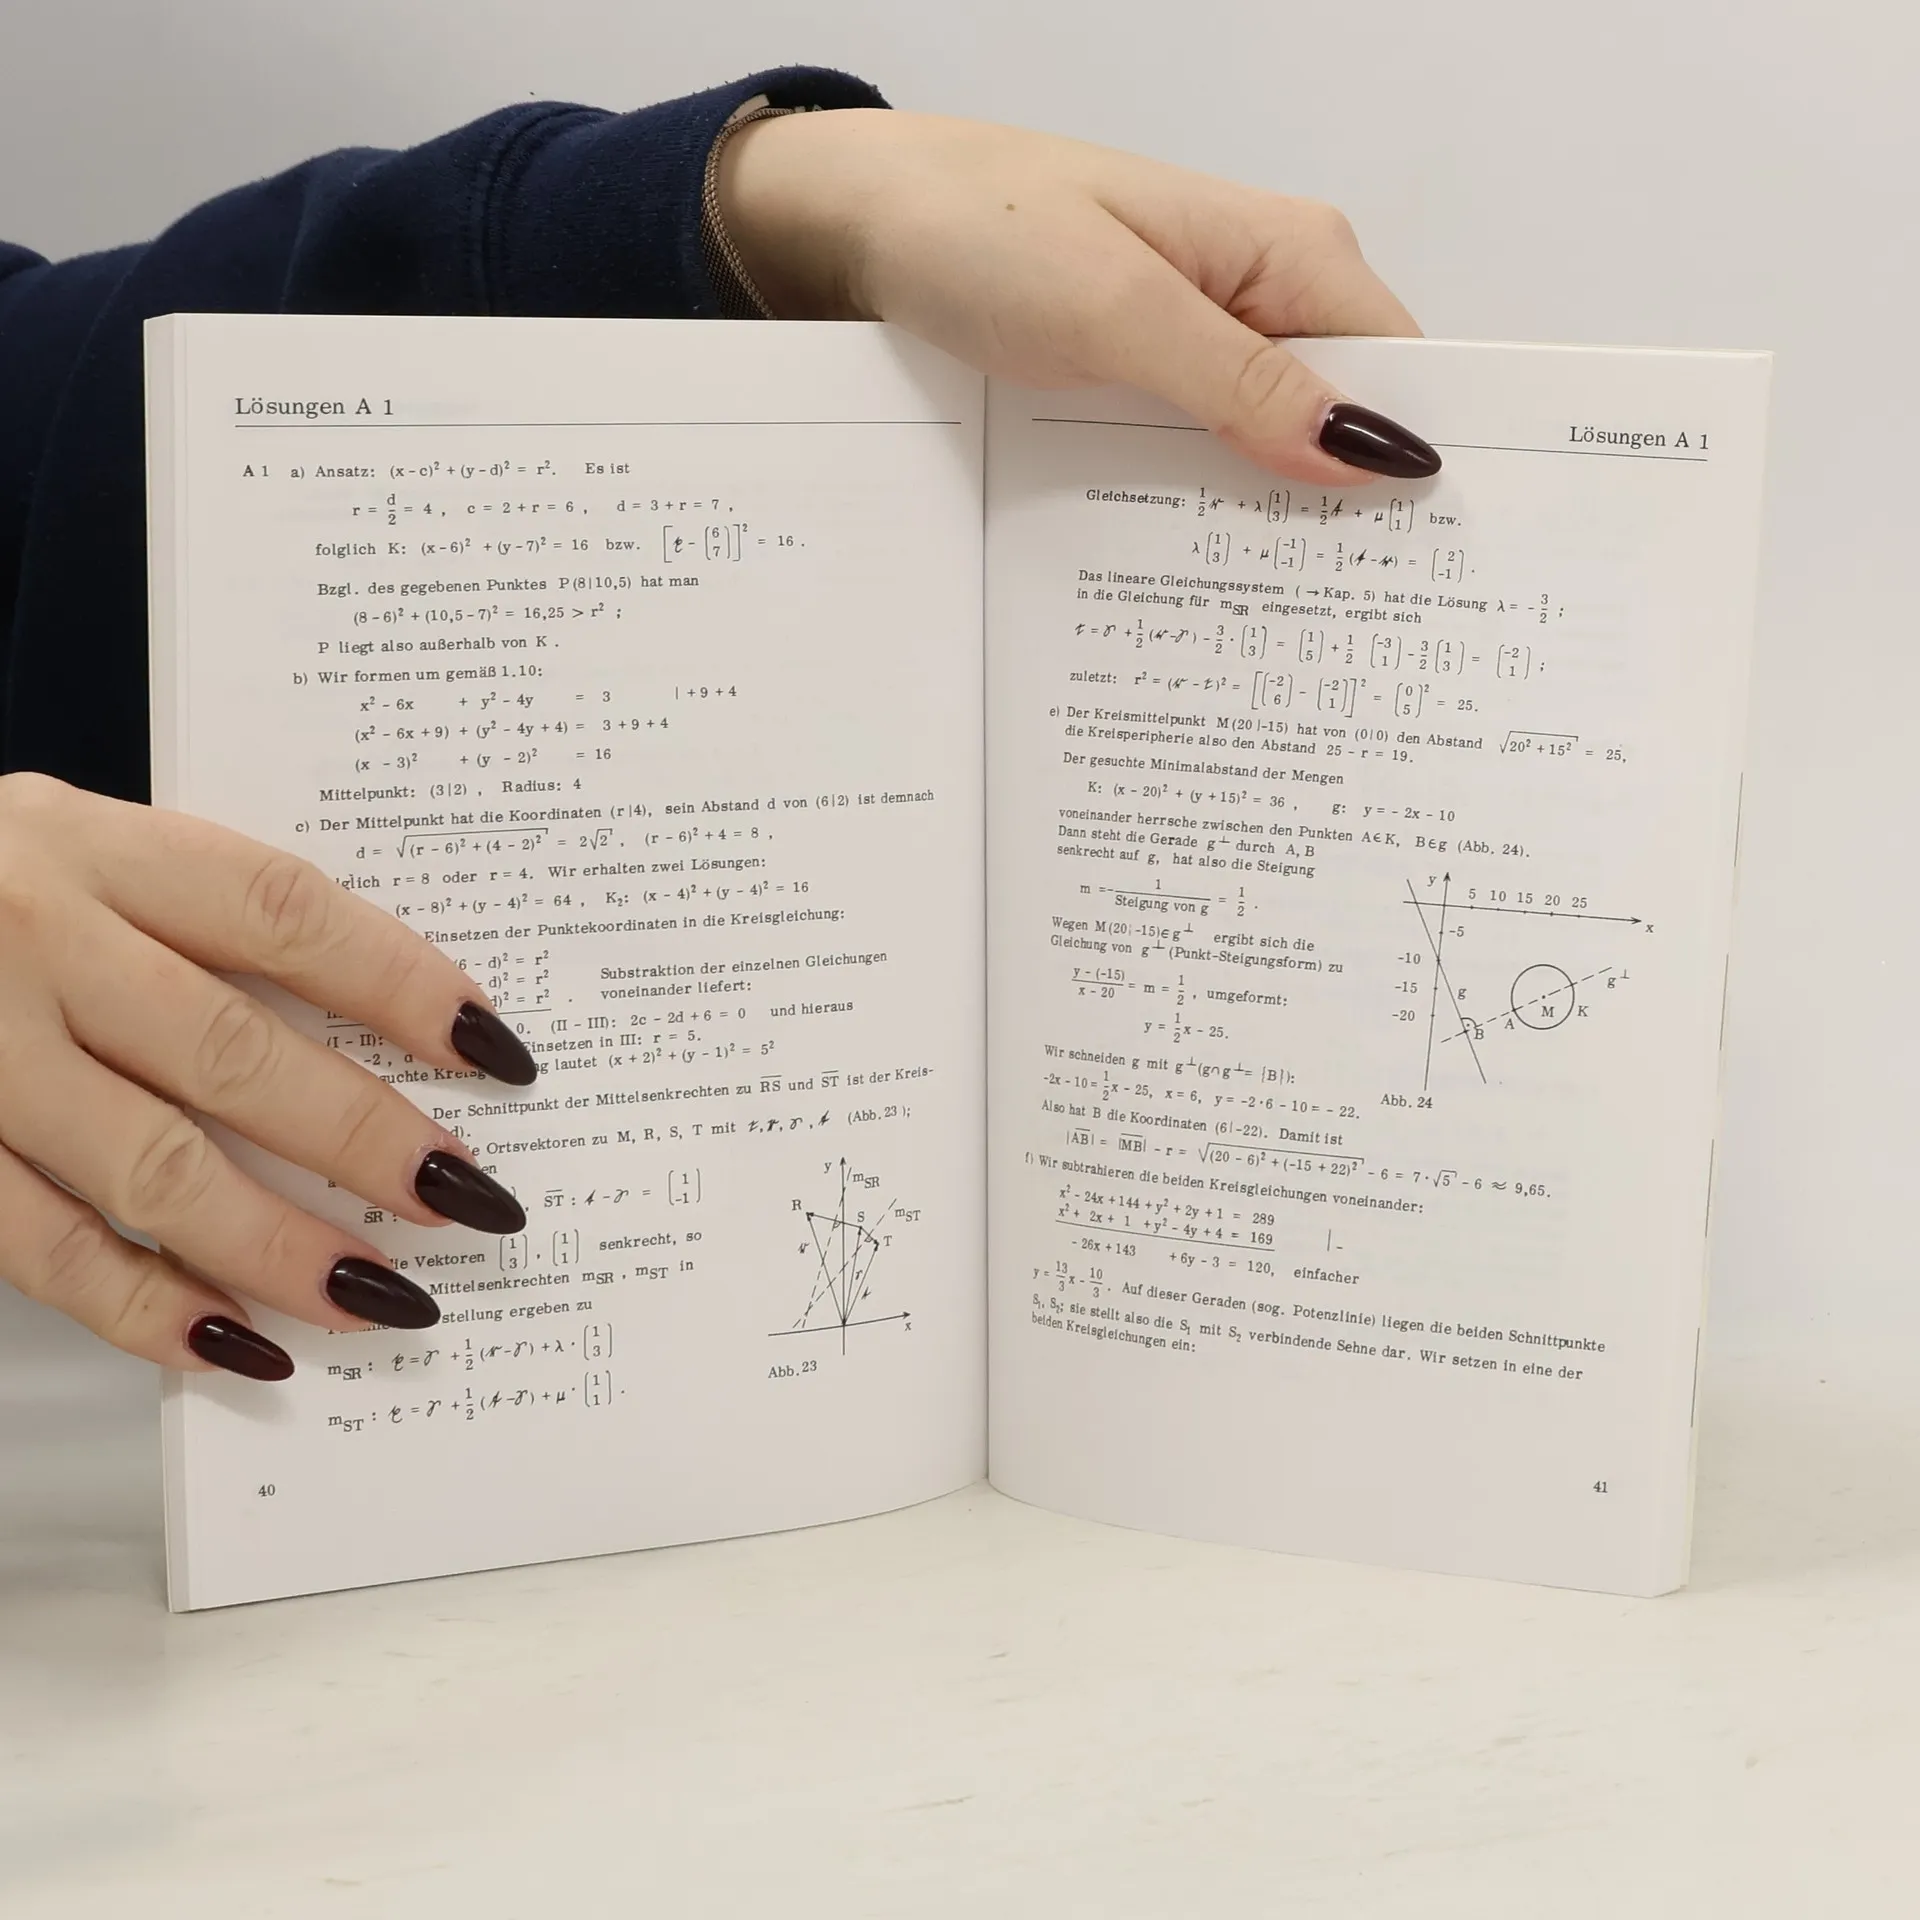 Lösungen A 1
A 1 a) Ansatz: (x - c)² + (y - d)² = r². Es ist
r = d/2 = 4 , c = 2 + r = 6 , d = 3 + r = 7 ,
folglich K: (x - 6)² + (y - 7)² = 16 bzw. [𝔵 - (6 7)]² = 16 .
Bzgl. des gegebenen Punktes P (8|10,5) hat man
(8 - 6)² + (10,5 - 7)² = 16,25 > r² ;
P liegt also außerhalb von K .
b) Wir formen um gemäß 1.10:
x² - 6x + y² - 4y = 3 | + 9 + 4
(x² - 6x + 9) + (y² - 4y + 4) = 3 + 9 + 4
(x - 3)² + (y - 2)² = 16
Mittelpunkt: (3|2) , Radius: 4
c) Der Mittelpunkt hat die Koordinaten (r|4), sein Abstand d von (6|2) ist demnach
d = √(r - 6)² + (4 - 2)² = 2√2 , (r - 6)² + 4 = 8 ,
glich r = 8 oder r = 4. Wir erhalten zwei Lösungen:
(x - 8)² + (y - 4)² = 64 , K₂: (x - 4)² + (y - 4)² = 16
Einsetzen der Punktekoordinaten in die Kreisgleichung:
6 - d)² = r²
- d)² = r² Substraktion der einzelnen Gleichungen
d)² = r² . voneinander liefert:
(I - II): 0. (II - III): 2c - 2d + 6 = 0 und hieraus
-2 , Einsetzen in III: r = 5.
suchte Kreisg g lautet (x + 2)² + (y - 1)² = 5²
Der Schnittpunkt der Mittelsenkrechten zu RS und ST ist der Kreis-
d).
e Ortsvektoren zu M, R, S, T mit (Abb. 23 );
en
SR : , ST : 𝔱 - 𝔰 = (1 -1)
ie Vektoren (1 3) , (1 1) senkrecht, so
Mittelsenkrechten mSR , mST in
stellung ergeben zu
mSR : 𝔵 = 𝔰 + 1/2 (𝔯 - 𝔰) + λ · (1 3)
mST : 𝔵 = 𝔰 + 1/2 (𝔱 - 𝔰) + μ · (1 1) .
y
mSR
R
S
mST
T
x
Abb. 23
40
Lösungen A 1
Gleichsetzung: 1/2 𝔯 + λ (1 3) = 1/2 𝔱 + μ (1 1) bzw.
λ (1 3) + μ (-1 -1) = 1/2 (𝔱 - 𝔯) = (2 -1) .
Das lineare Gleichungssystem ( → Kap. 5) hat die Lösung λ = - 3/2 ;
in die Gleichung für mSR eingesetzt, ergibt sich
𝔷 = 𝔰 + 1/2 (𝔯 - 𝔰) - 3/2 · (1 3) = (1 5) + 1/2 (-3 1) - 3/2 (1 3) = (-2 1) ;
zuletzt: r² = (𝔯 - 𝔷)² = [(-2 6) - (-2 1)]² = (0 5)² = 25.
e) Der Kreismittelpunkt M (20 |-15) hat von (0|0) den Abstand √20² + 15² = 25,
die Kreisperipherie also den Abstand 25 - r = 19.
Der gesuchte Minimalabstand der Mengen
K: (x - 20)² + (y + 15)² = 36 , g: y = - 2x - 10
voneinander herrsche zwischen den Punkten A∈K, B∈g (Abb. 24).
Dann steht die Gerade g⊥ durch A, B
senkrecht auf g, hat also die Steigung
m = - 1/Steigung von g = 1/2 .
Wegen M (20|-15)∈g⊥ ergibt sich die
Gleichung von g⊥ (Punkt-Steigungsform) zu
y - (-15)/x - 20 = m = 1/2 , umgeformt:
y = 1/2 x - 25.
y
5 10 15 20 25
x
-5
-10
-15
-20
g
g⊥
A
M
K
B
Abb. 24
Wir schneiden g mit g⊥ (g∩g⊥ = {B}):
-2x - 10 = 1/2 x - 25, x = 6, y = -2·6 - 10 = - 22.
Also hat B die Koordinaten (6|-22). Damit ist
|AB| = |MB| - r = √(20 - 6)² + (-15 + 22)² - 6 = 7·√5 - 6 ≈ 9,65.
f) Wir subtrahieren die beiden Kreisgleichungen voneinander:
x² - 24x + 144 + y² + 2y + 1 = 289
x² + 2x + 1 + y² - 4y + 4 = 169 | -
- 26x + 143 + 6y - 3 = 120, einfacher
y = 13/3 x - 10/3 . Auf dieser Geraden (sog. Potenzlinie) liegen die beiden Schnittpunkte
S₁, S₂; sie stellt also die S₁ mit S₂ verbindende Sehne dar. Wir setzen in eine der
beiden Kreisgleichungen ein:
41